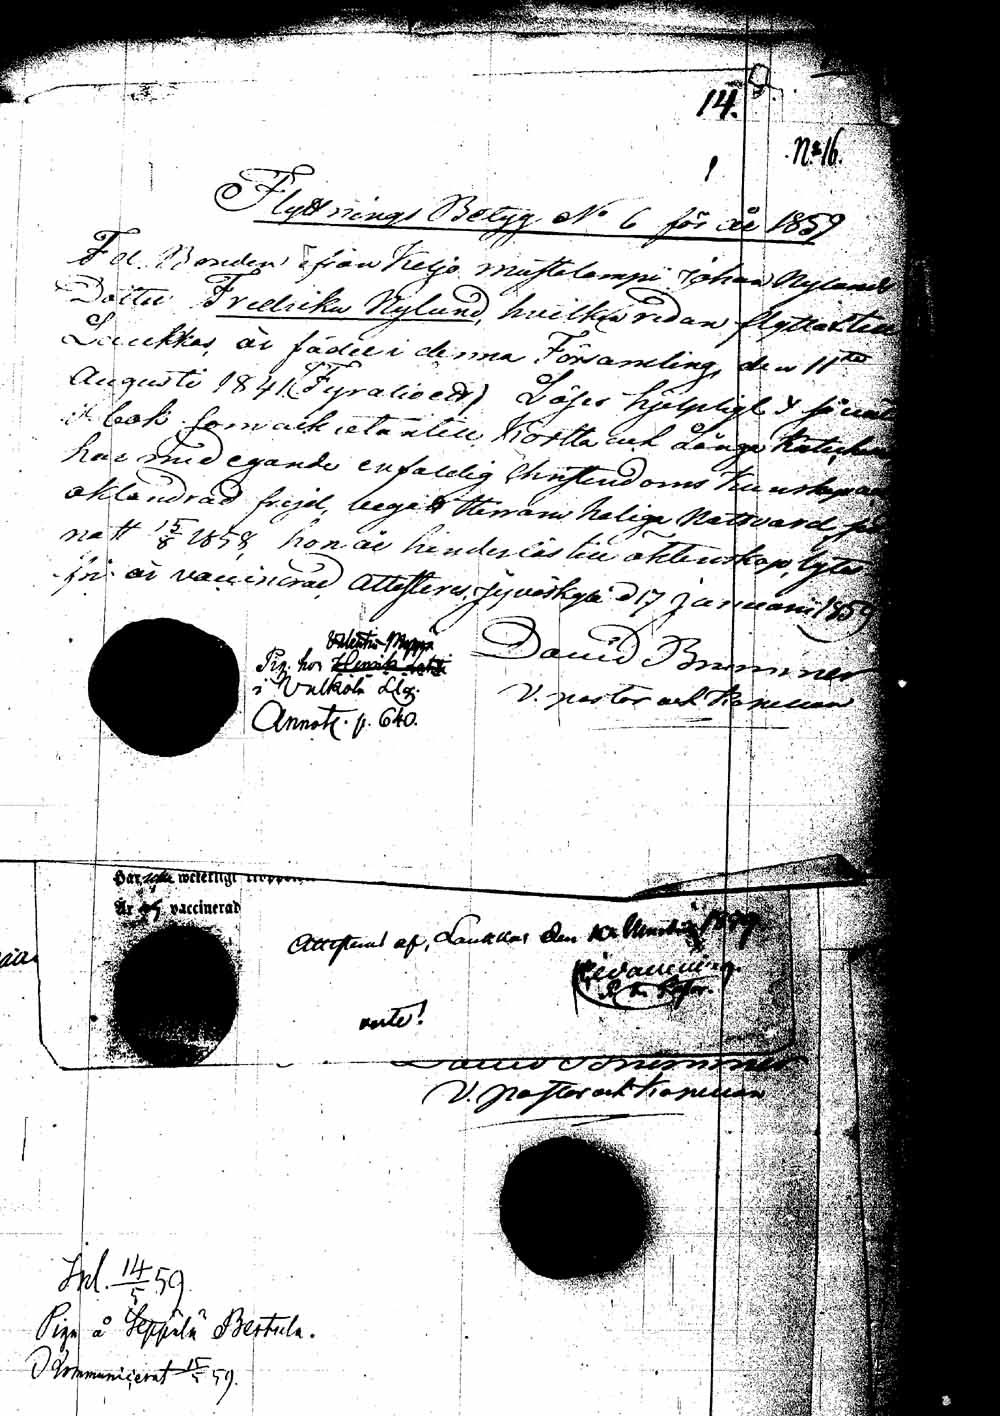 14.
No 16.
Flyttnings Betyg No 6 för år 1859
Fd. Bonden ifrån Keljo Mustelampi Johan Nylunds
Dotter Fredrika Nylund, hvilken redan flyttat till
Laukkas, är född i denna Församling den 11te
Augusti 1841 (Fyratioett) Läser hjelpligt i
bok som ock utantill Korta och Långa Katechesen
har med egande enfaldig Christendoms kunskap och
oklandrad frejd, begått Herrans heliga Nattvard
natt 15/8 1858, hon är hinderlös till äktenskap, lytes
fri är vaccinerad, Attesteras, Jyväskylä d 17 Januari 1859
David Brummer
V. pastor och Kapellan
Pig. hos
i Valkola Lkg.
Annot. p. 640.
Har weterligt
Är vaccinerad
Attesteras af, Laukkas den 1859
verte!
David Brummer
V. pastor och Kapellan
Inl. 14/5 59.
Piga å Seppälä Bertula.
Kommunicerat 15/5 59.